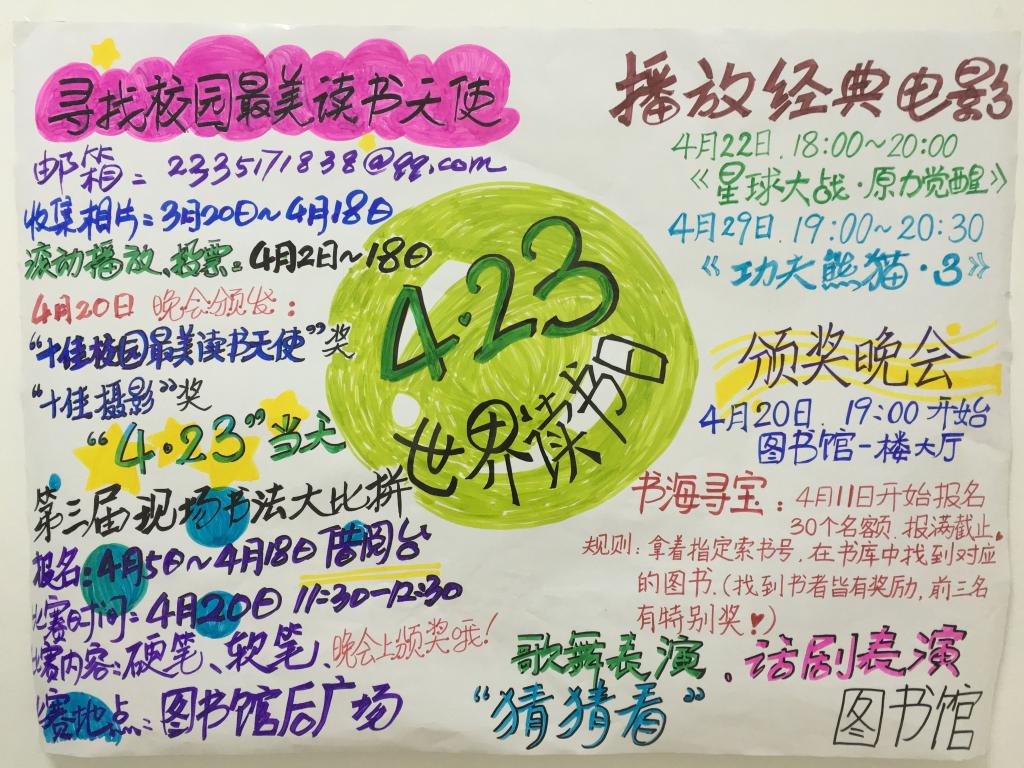 寻找校园最美读书天使
邮箱: 2335171838@qq.com
收集相片:3月20日~4月18日
滚动播放、投票:4月2日~18日
4月20日 晚会颁发:
“十佳校园最美读书天使”奖
“十佳摄影”奖
“4·23”当天
第三届现场书法大比拼
报名:4月5日~4月18日 借阅台
比赛时间:4月20日 11:30-12:30
比赛内容:硬笔、软笔、晚会上颁奖哦!
比赛地点:图书馆后广场
4·23
世界读书日
播放经典电影
4月22日.18:00~20:00
《星球大战·原力觉醒》
4月29日.19:00~20:30
《功夫熊猫·3》
颁奖晚会
4月20日.19:00开始
图书馆一楼大厅
书海寻宝:4月11日开始报名
30个名额.报满截止.
规则:拿着指定索书号,在书库中找到对应
的图书.(找到书者皆有奖励,前三名
有特别奖!)
歌舞表演、话剧表演
“猜猜看”
图书馆